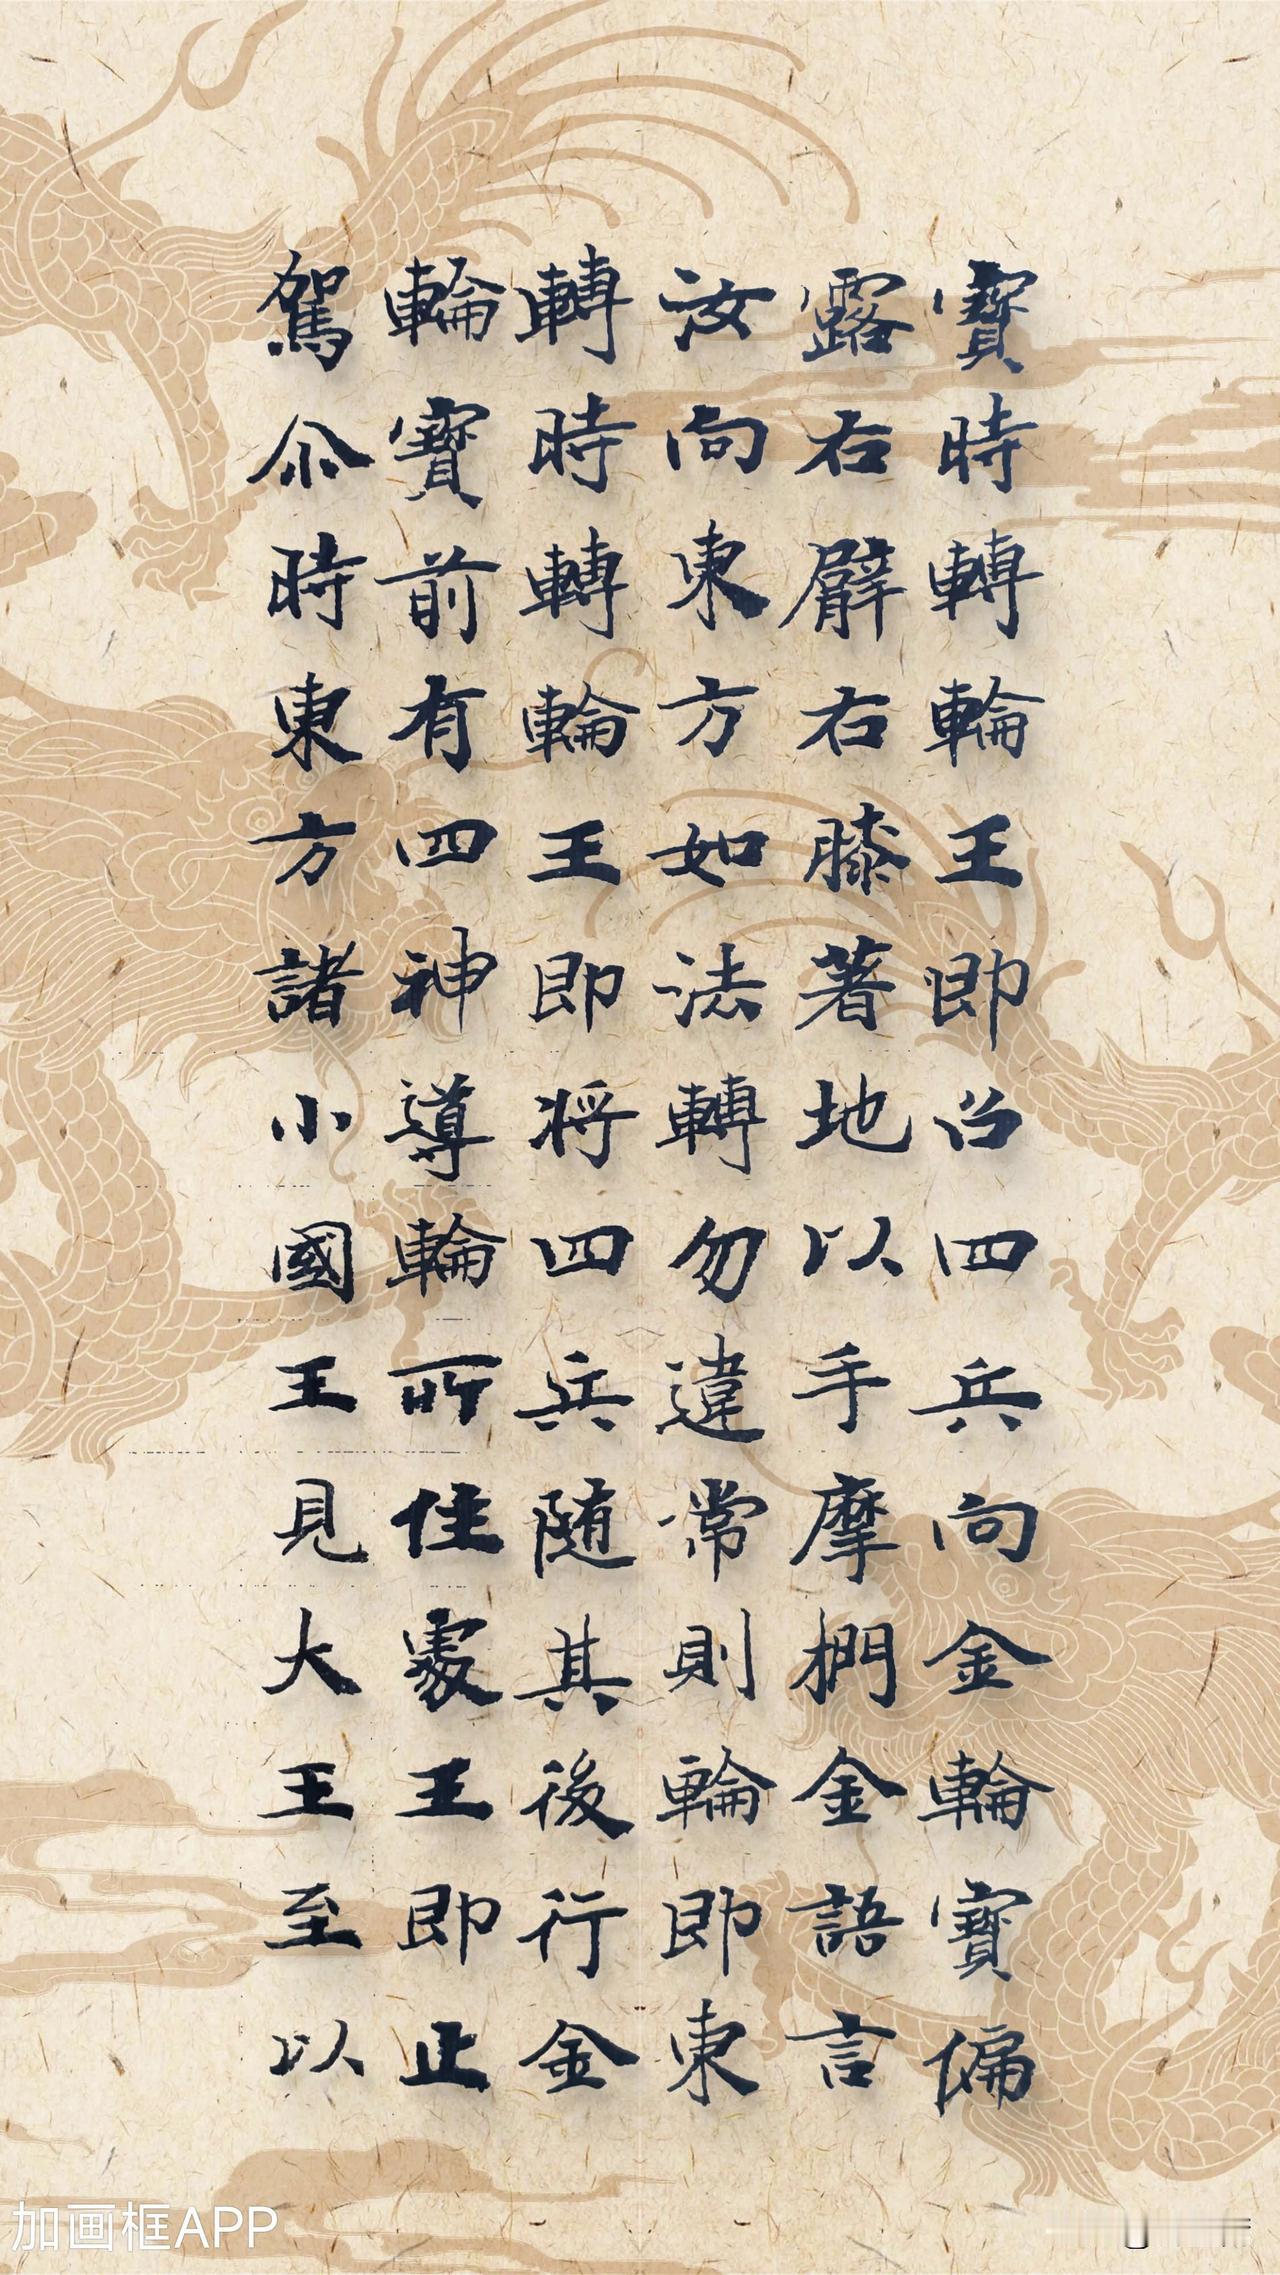 寶時轉輪王即召四兵向金輪寶偏
露右臂右膝著地以手摩捫金語言
汝向東方如法轉勿違常則輪即東
轉時轉輪王即将四兵随其後行金
輪寶前有四神導輪所住處王即止
駕尒時東方諸小國王見大王至以
加画框APP